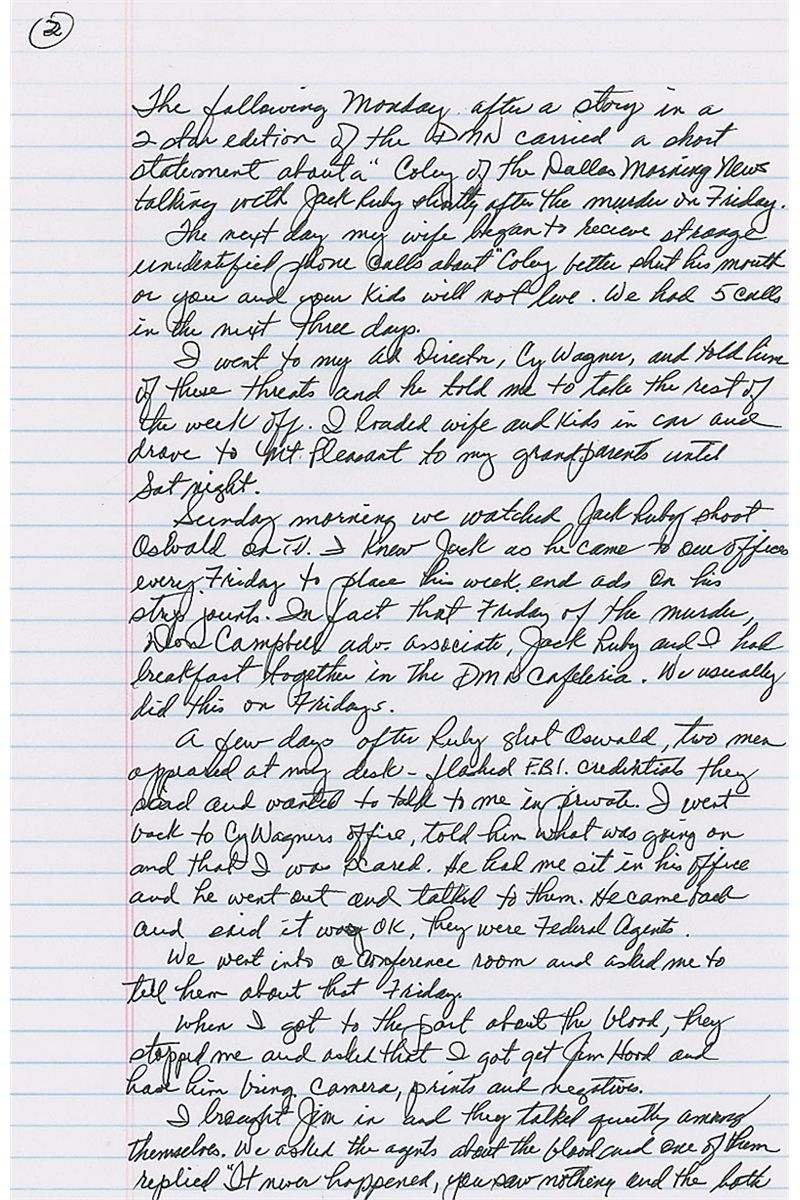 2
The following Monday after a story in a
2 star edition of the DMN carried a short
statement about a " Coley of the Dallas Morning News
talking with Jack Ruby shortly after the murder on Friday.
The next day my wife began to recieve strange
unidentified phone calls about "Coley better shut his mouth
or you and your kids will not live. We had 5 calls
in the next three days.
I went to my Ad Director, Cy Wagner, and told him
of these threats and he told me to take the rest of
the week off. I loaded wife and kids in car and
drove to Mt. Pleasant to my grandparents until
Sat night.
Sunday morning we watched Jack Ruby shoot
Oswald on TV. I knew Jack as he came to our offices
every Friday to place his week end ads on his
strip joints. In fact that Friday of the murder,
Don Campbell adv. associate, Jack Ruby and I had
breakfast together in the DMN cafeteria. We usually
did this on Fridays.
A few days after Ruby shot Oswald, two men
appeared at my desk - flashed F.B.I. credentials they
said and wanted to talk to me in private. I went
back to Cy Wagners office, told him what was going on
and that I was scared. He had me sit in his office
and he went out and talked to them. He came back
and said it was OK, they were Federal Agents.
We went into a conference room and asked me to
tell them about that Friday.
When I got to the part about the blood, they
stopped me and asked that I got get Jim Hood and
have him bring camera, prints and negatives.
I brought Jim in and they talked quietly among
themselves. We asked the agents about the blood and one of them
replied "It never happened, you saw nothing and the both